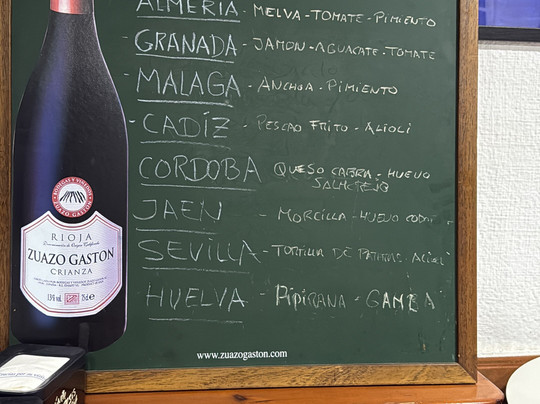 ALMERIA - MELVA - TOMATE - PIMIENTO
- GRANADA - JAMON - AGUACATE - TOMATE
- MALAGA - ANCHOA - PIMIENTO
- CADIZ - PESCAO FRITO - ALIOLI
CORDOBA QUESO CABRA - HUEVO
SALMOREJO
JAEN - MORCILLA - HUEVO CODOR
SEVILLA - TORTILLA DE PATATAS - ALIOLI
HUELVA - PIPIRRANA - GAMBA
BODEGAS Y VIÑEDOS
ZUAZO GASTON
RIOJA
Denominación de Origen Calificada
ZUAZO GASTON
CRIANZA
75cl e
www.zuazogaston.com